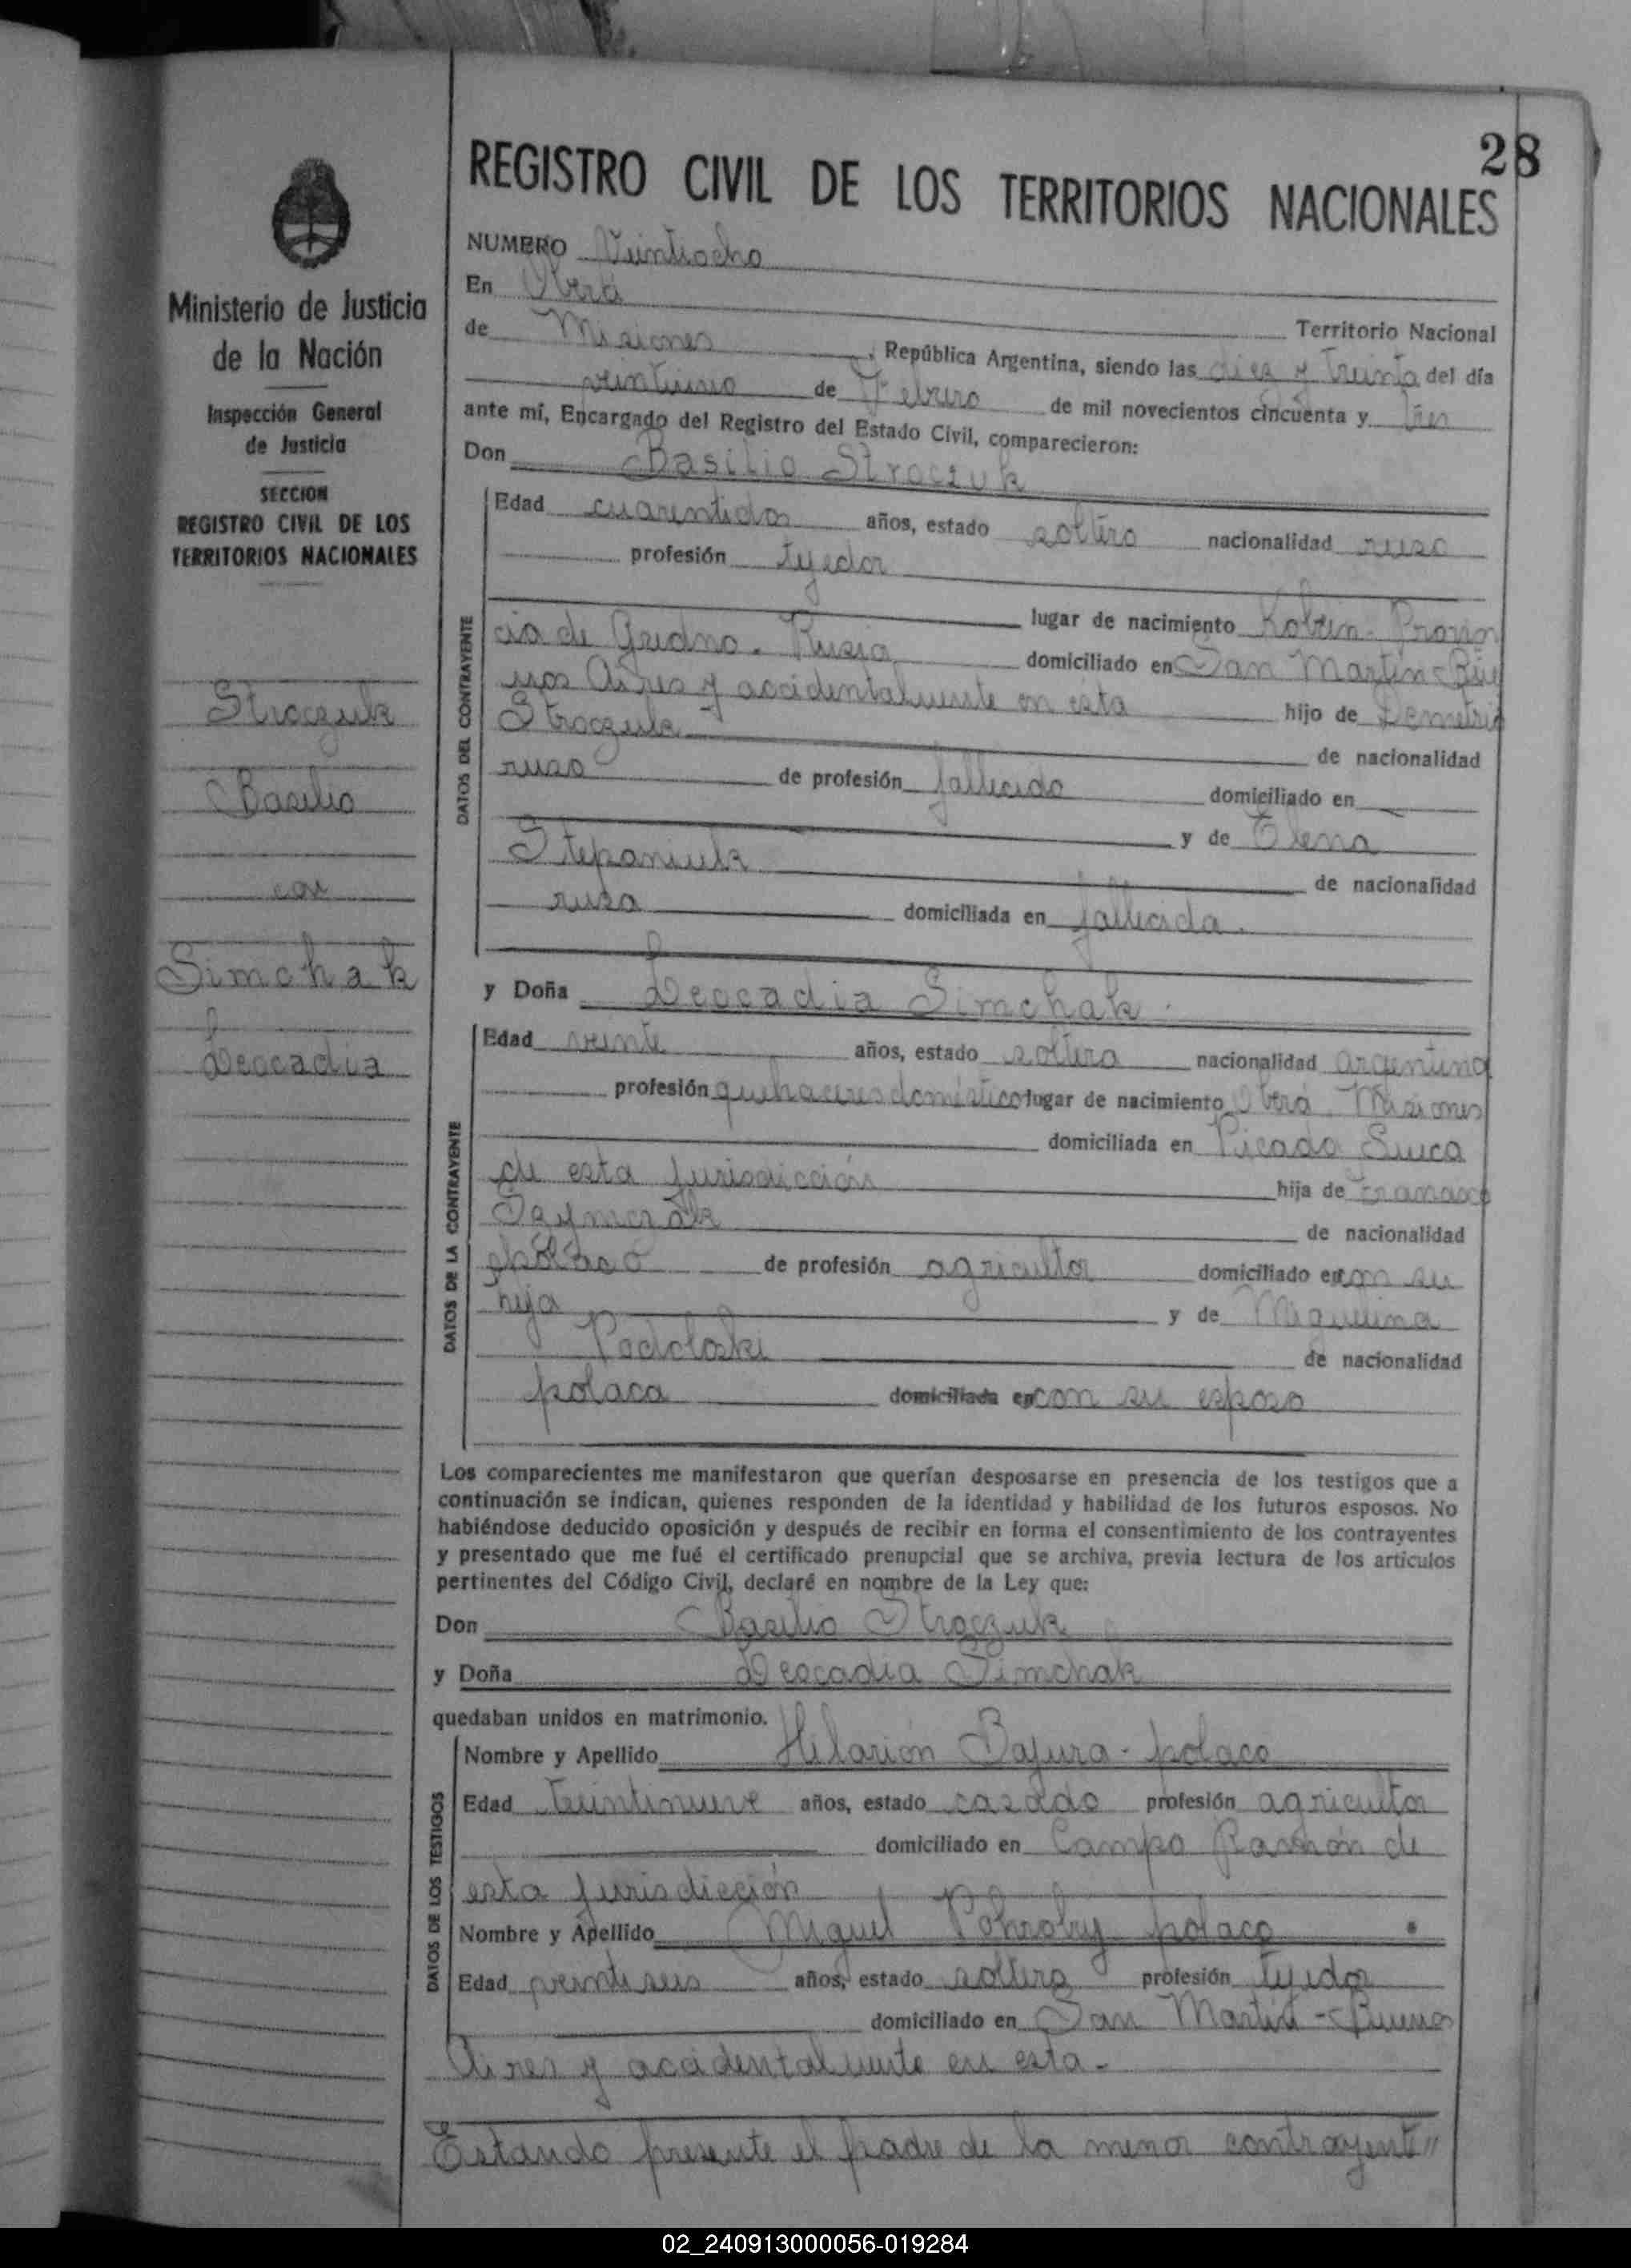 28
REGISTRO CIVIL DE LOS TERRITORIOS NACIONALES
Ministerio de Justicia
de la Nación
Inspección General
de Justicia
SECCION
REGISTRO CIVIL DE LOS
TERRITORIOS NACIONALES
Stroczuk
Basilio
con
Simchak
Leocadia
NUMERO Veintiocho
En Oberá
Territorio Nacional
de Misiones, República Argentina, siendo las diez y treinta del día
veintiuno de Febrero de mil novecientos cincuenta y tres
ante mí, Encargado del Registro del Estado Civil, comparecieron:
Don Basilio Stroczuk
DATOS DEL CONTRAYENTE
Edad cuarentidos años, estado soltero nacionalidad ruso
profesión tejedor
lugar de nacimiento Kobrin - Provin
cia de Grodno. Rusia domiciliado en San Martin - Bue
nos Aires y accidentalmente en esta hijo de Demetrio
Stroczuk de nacionalidad
ruso de profesión fallecido domiciliado en
y de Elena
Stepaniuk de nacionalidad
rusa domiciliada en fallecida.
y Doña Leocadia Simchak.
DATOS DE LA CONTRAYENTE
Edad veinte años, estado soltera nacionalidad argentina
profesión quehaceres domésticos lugar de nacimiento Oberá. Misiones
domiciliada en Picada Suiza
de esta jurisdicción hija de
Szymczak de nacionalidad
polaco de profesión agricultor domiciliado en con su
hija y de Miguelina
Podoloski de nacionalidad
polaca domiciliada en con su esposo
Los comparecientes me manifestaron que querían desposarse en presencia de los testigos que a
continuación se indican, quienes responden de la identidad y habilidad de los futuros esposos. No
habiéndose deducido oposición y después de recibir en forma el consentimiento de los contrayentes
y presentado que me fué el certificado prenupcial que se archiva, previa lectura de los artículos
pertinentes del Código Civil, declaré en nombre de la Ley que:
Don Basilio Stroczuk
y Doña Leocadia Simchak
quedaban unidos en matrimonio.
DATOS DE LOS TESTIGOS
Nombre y Apellido Hilarión Bajura - polaco
Edad treintinueve años, estado casado profesión agricultor
domiciliado en Campo Ramón de
esta jurisdicción
Nombre y Apellido Miguel polaco
Edad veintiseis años, estado soltero profesión tejedor
domiciliado en San Martin - Buenos
Aires y accidentalmente en esta -
Estando presente el padre de la menor contrayente //
02_240913000056-019284